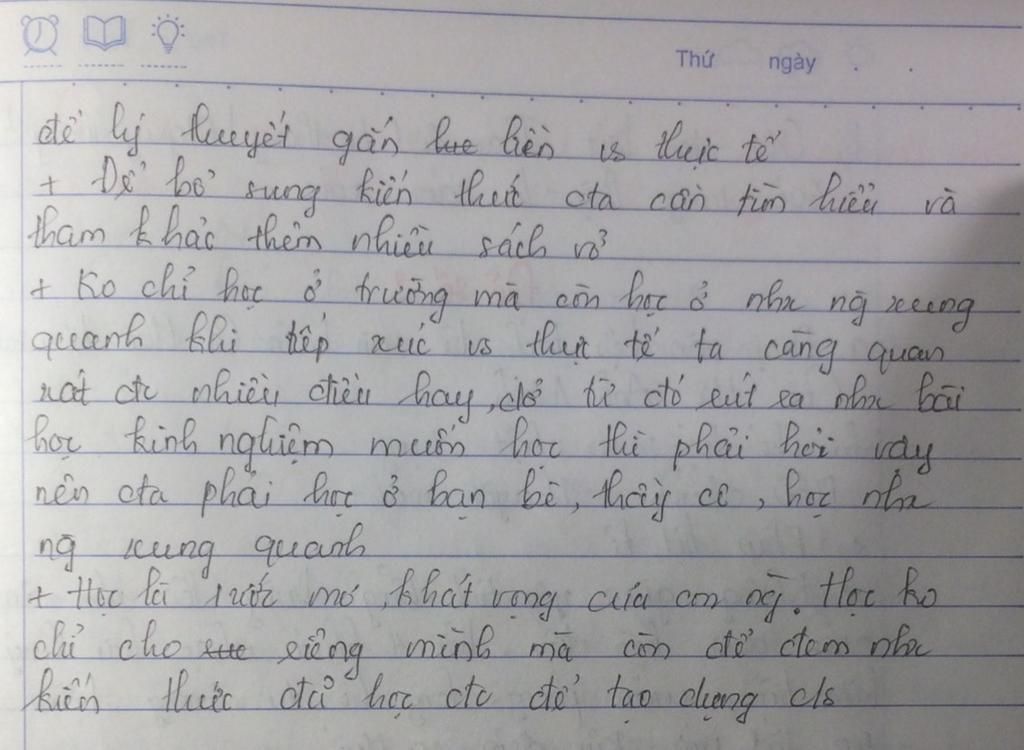 Thứ ngày . .
để lý thuyết gắn liền vs thực tế
+ Để bổ sung kiến thức cta cần tìm hiểu và
tham khảc thêm nhiều sách vở
+ Ko chỉ học ở trường mà còn học ở nhx ng̀ xung
quanh khi tiếp xúc vs thực tế ta càng quan
xát đc nhiều điều hay, để từ đó rút ra nhx bài
học kinh nghiệm muốn học thì phải hỏi vậy
nên cta phải học ở bạn bè, thầy cô, học nhx
ng̀ xung quanh
+ Học là ước mơ, khát vọng của con ng̀. Học ko
chỉ cho riêng mình mà còn để đem nhx
kiến thức đã học đc để tạo dựng c/s